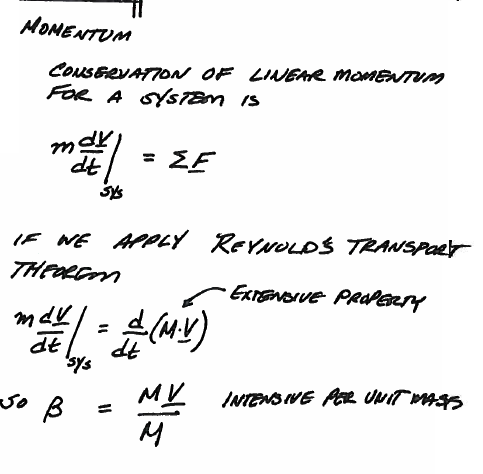 MOMENTUM
CONSERVATION OF LINEAR MOMENTUM
FOR A SYSTEM IS
m dV/dt |sys = ΣF
IF WE APPLY REYNOLD'S TRANSPORT
THEOREM
EXTENSIVE PROPERTY
m dV/dt |sys = d/dt (M·V)
SO β = MV/M INTENSIVE PER UNIT MASS